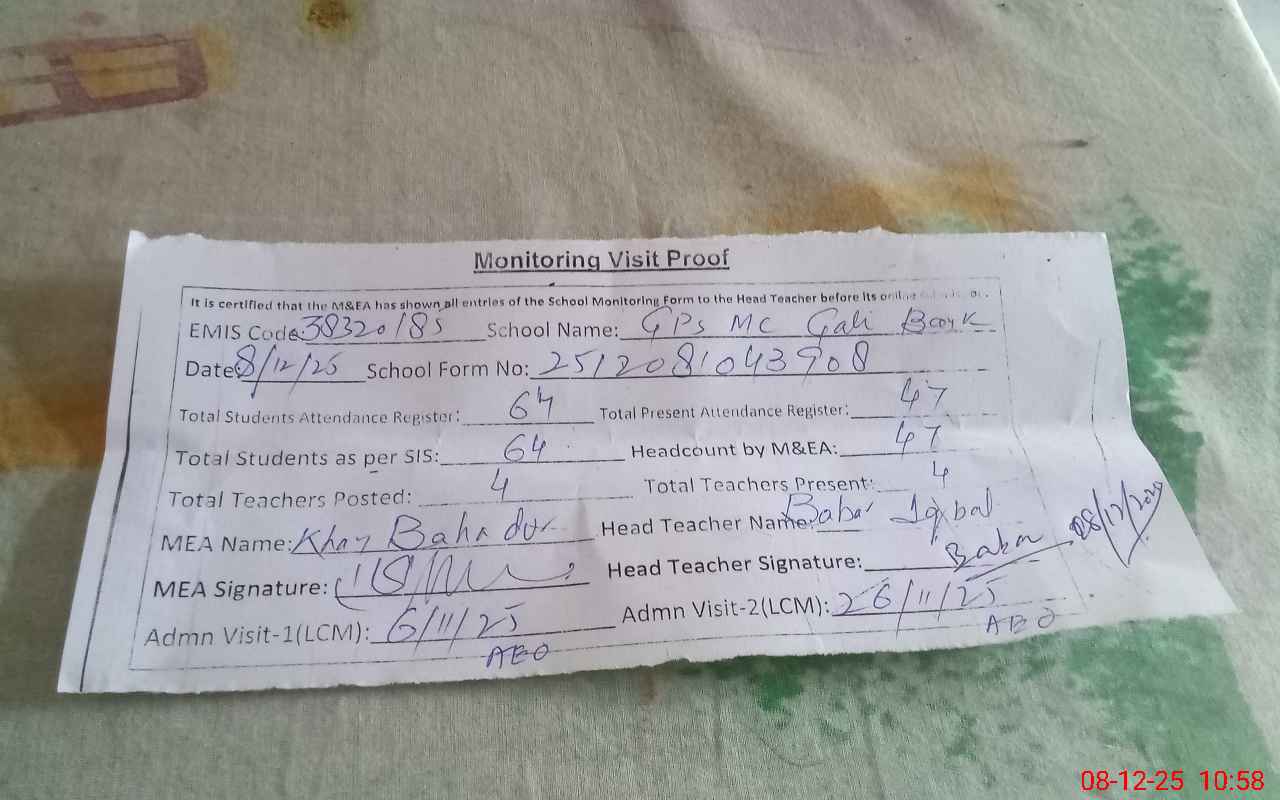 Monitoring Visit Proof
It is certified that the M&EA has shown all entries of the School Monitoring Form to the Head Teacher before its online
EMIS Code: 38320185 School Name: GPS MC Gali
Date: 8/12/25 School Form No: 2512081043908
Total Students Attendance Register: 64 Total Present Attendance Register: 47
Total Students as per SIS: 64 Headcount by M&EA: 47
Total Teachers Posted: 4 Total Teachers Present: 4
MEA Name: Khan Bahadur Head Teacher Name: Babar Iqbal
MEA Signature: Head Teacher Signature: Babar
Admn Visit-1(LCM): 6/11/25 Admn Visit-2(LCM): 26/11/25
AEO AEO
08-12-25 10:58